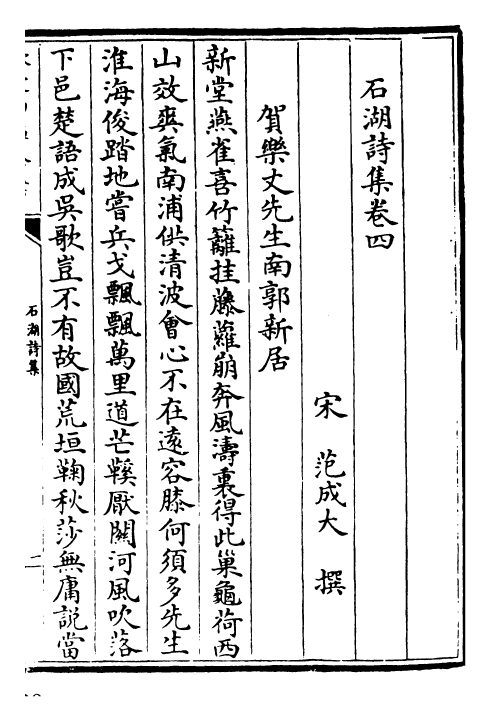 石湖詩集卷四
宋 范成大 撰
賀樂丈先生南郭新居
新堂燕雀喜竹籬挂藤蘿崩奔風濤裏得此巢龜荷西
山效爽氣南浦供清波會心不在遠容膝何須多先生
淮海俊踏地嘗兵戈飄飄萬里道芒鞵厭關河風吹落
下邑楚語成吳歌豈不有故國荒垣鞠秋莎無庸說當
石湖詩集
二